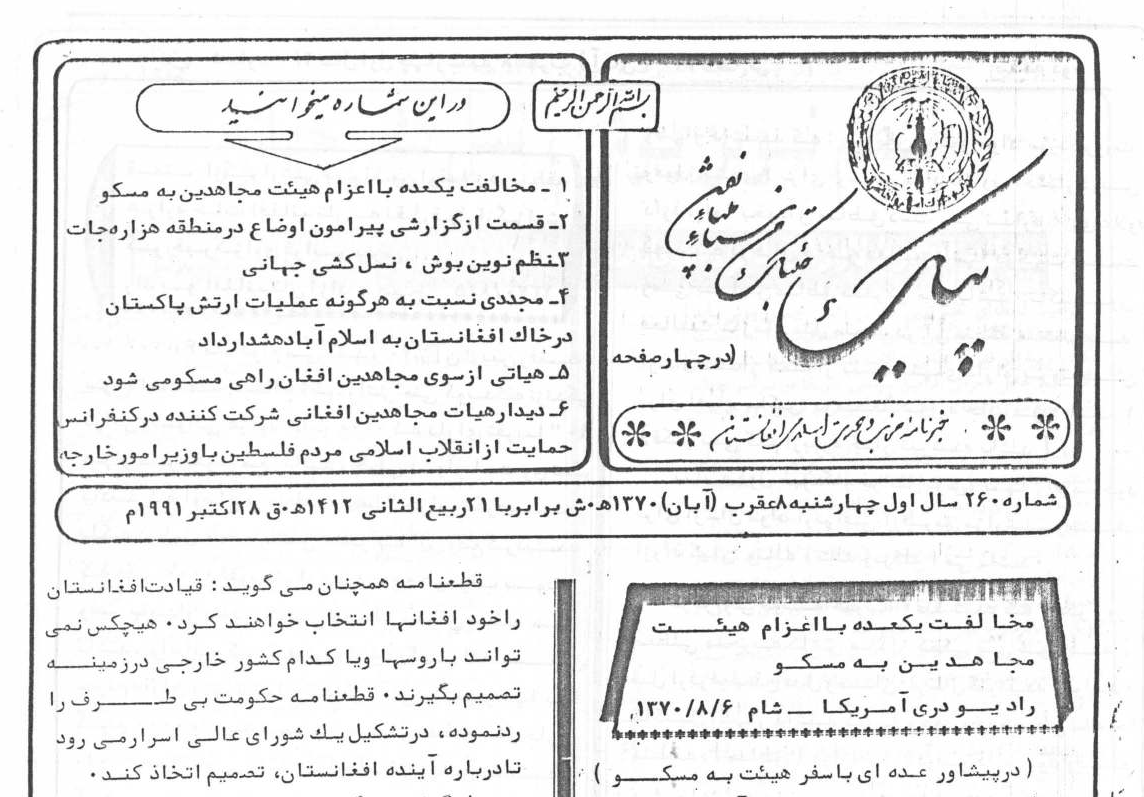 بسم الله الرحمن الرحیم
(درچهارصفحه
خبرنامه حزب وحدت اسلامی افغانستان
دراین شماره میخوانید
۱ ـ مخالفت یکعده بااعزام هیئت مجاهدین به مسکو
۲ـ قسمت ازگزارشی پیرامون اوضاع درمنطقه هزاره‌جات
۳ـنظم نوین بوش ، نسل کشی جهانی
۴ـ مجددی نسبت به هرگونه عملیات ارتش پاکستان
درخاك افغانستان به اسلام آبادهشدارداد
۵ـ هیاتی ازسوی مجاهدین افغان راهی مسکومی شود
۶ـ دیدارهیات مجاهدین افغانی شرکت کننده درکنفرانس
حمایت ازانقلاب اسلامی مردم فلسطین باوزیرامورخارجه
شماره۲۶۰سال اول چهارشنبه۸عقرب (آبان)۱۳۷۰هـ۰ش برابربا۲۱ربیع الثانی ۱۴۱۲هـ۰ق ۲۸اکتبر۱۹۹۱م
مخا لفت یکعده بااعزام هیئــــت
مجا هدین به مسکــو
رادیــو دری آمــریکا ــ شام ۱۳۷۰/۸/۶
(درپیشاور عده ای باسفر هیئت به مسکــــو )
قطعنامه همچنان مـی گویـد: قیادت‌افغانستان
راخود افغانها انتخاب خواهنـد کـرد۰ هیچکس نمی
تواند باروسها ویا کدام کشور خارجـی درزمینــــه
تصمیم بگیرند۰ قطعنامه حکومت بی طــــرف را
ردنموده، درتشکیل یك شورای عالـی اسرارمی رود
تادرباره آینده افغانستان، تصمیم اتخاذ کنـد۰